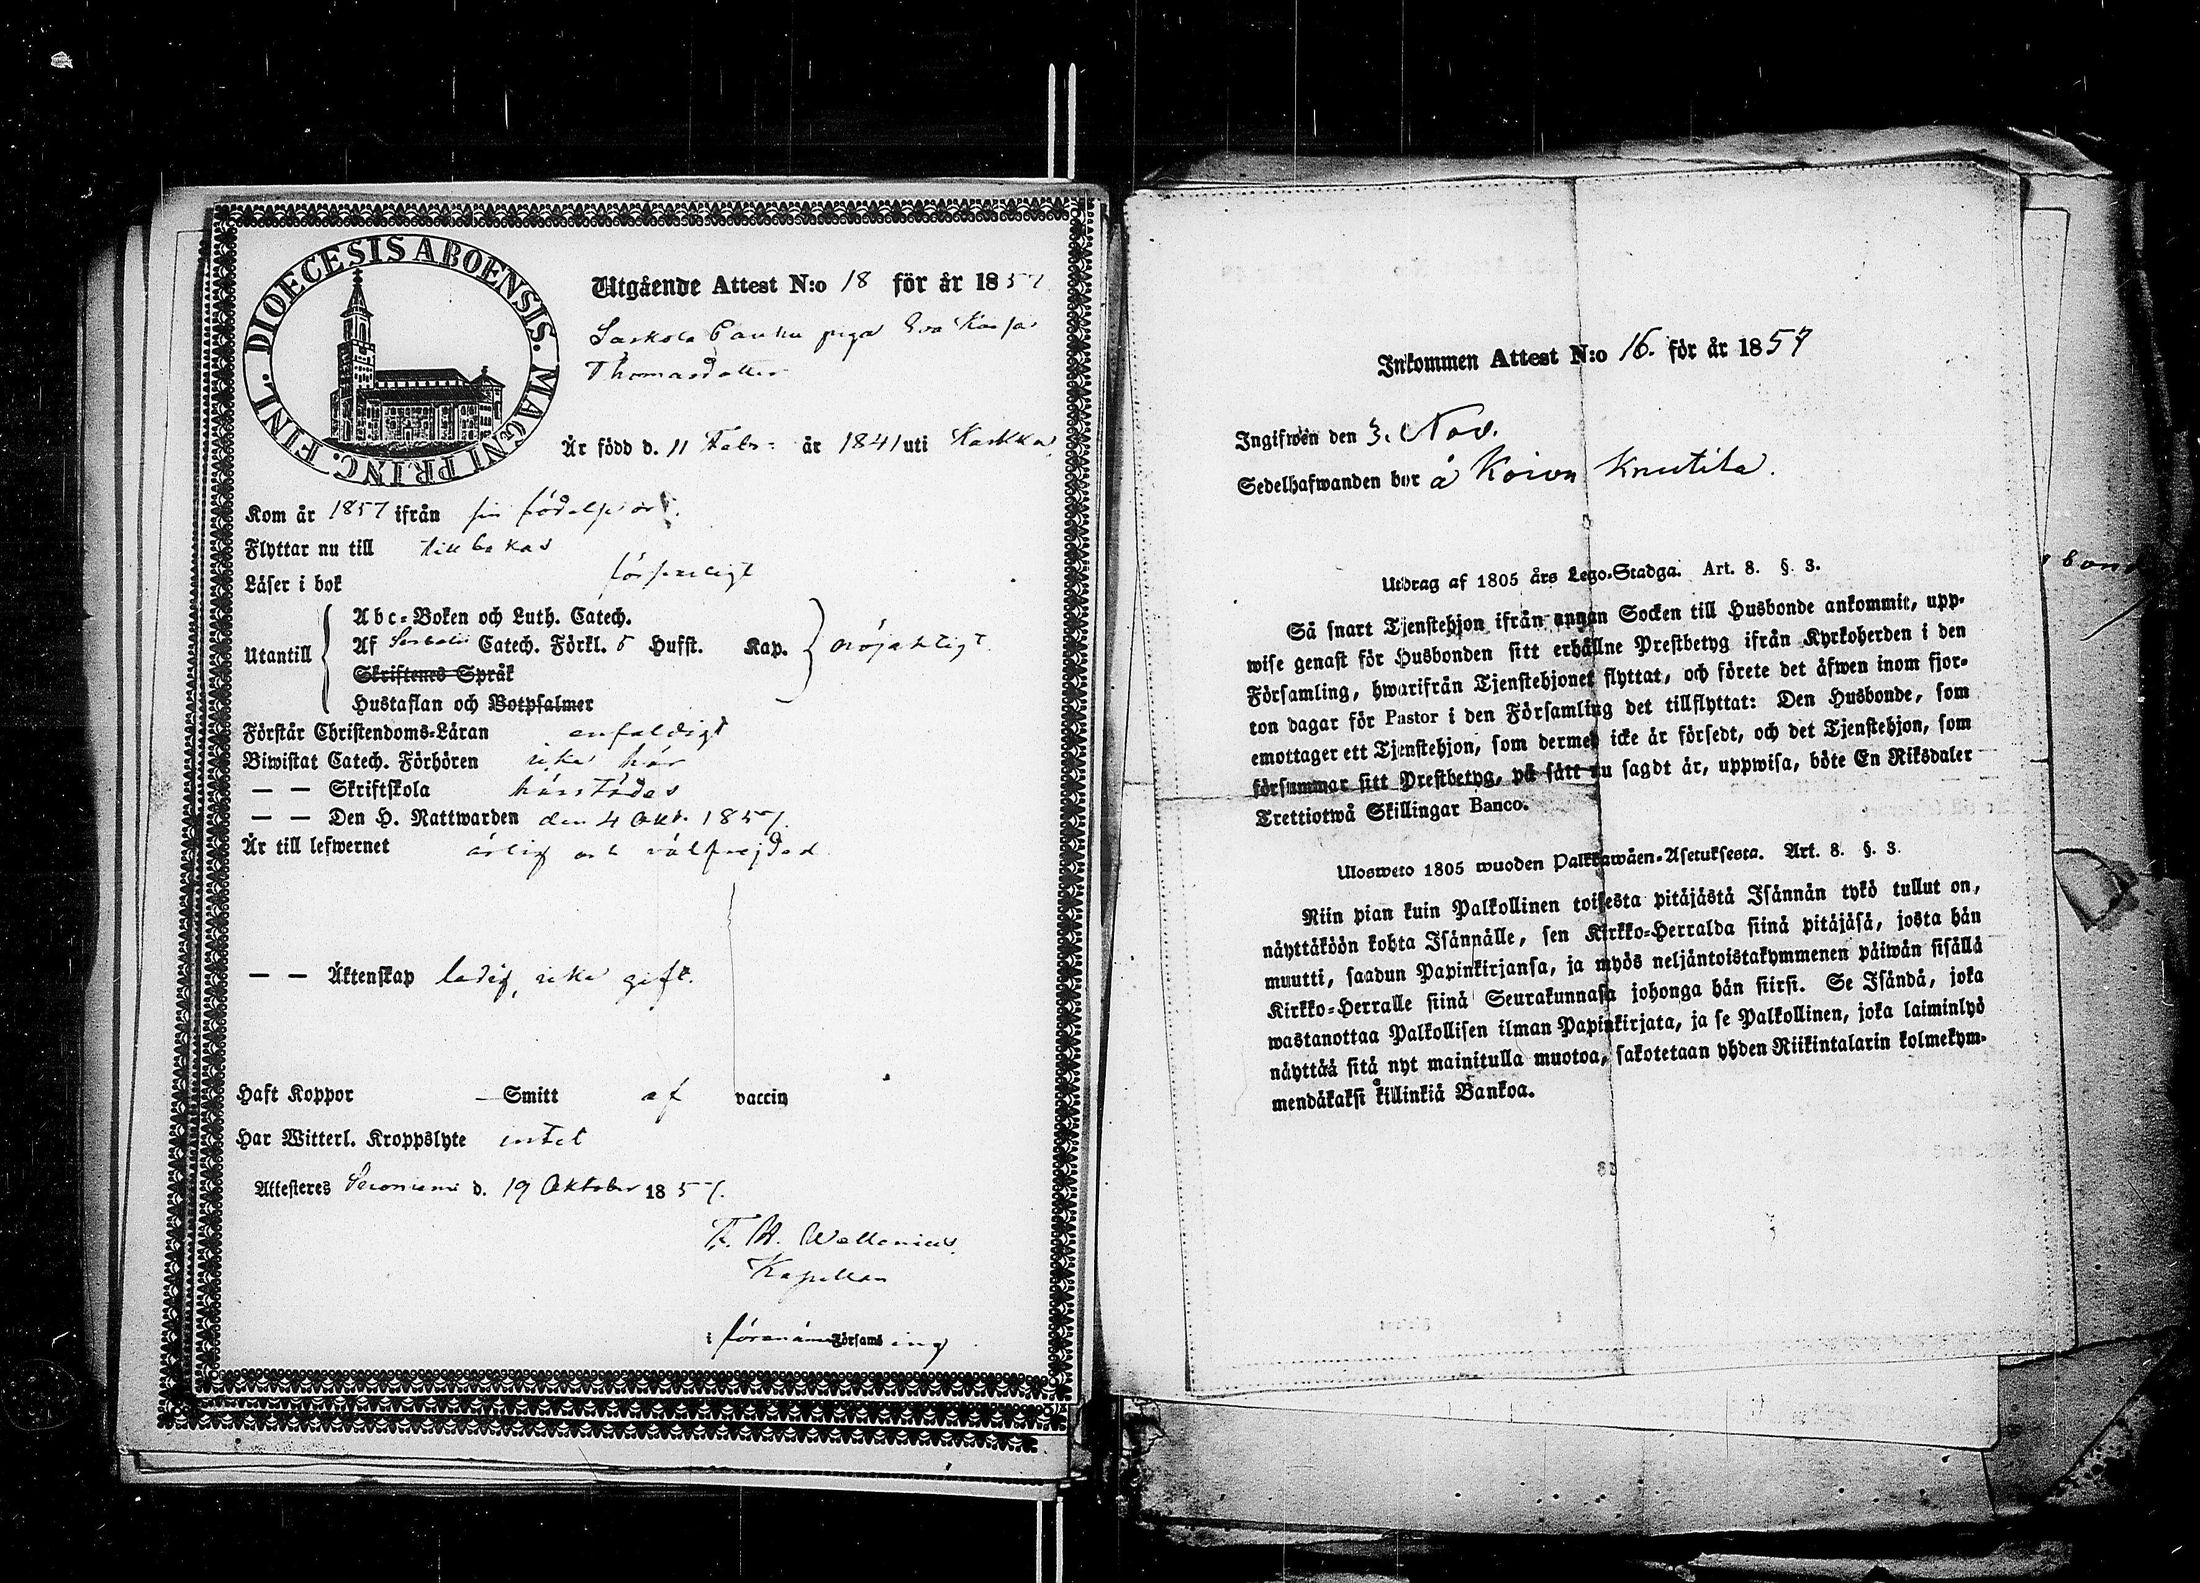 DIOECESIS ABOENSIS. MAGNI PRINC. FINL.
Utgående Attest N:o 18 för år 1857
Saskola Pauhu piga Eva Kaisa
Thomasdotter
Är född d. 11 Febr: år 1841 uti Karkku
Kom år 1857 ifrån sin födelseort.
Flyttar nu till tillbakas
Läser i bok försvarligt
Utantill
Abc-Boken och Luth. Catech.
Af Catech. Förkl. 5 Hufst. Kap. nöjaktligt
Skriftenes Språk
Hustaflan och Botpsalmer
Förstår Christendoms-Läran enfaldigt
Biwistat Catech. Förhören icke här
— — Skriftskola härstädes
— — Den H. Nattwarden den 4 Okt. 1857.
Är till lefwernet ärlig och välfrejdad
— — Äktenskap ledig, icke gift.
Haft Koppor — Smitt af vaccin
Har Witterl. Kroppslyte intet
Attesteres Suoniemi d. 19 Oktober 1857.
Wallenius
Kapellan
i förenämnde Församling
Inkommen Attest N:o 16. för år 1857
Ingifwen den 3. Nov.
Sedelhafwanden bor å Koivu Knutila.
Utdrag af 1805 års Lego-Stadga. Art. 8. §. 3.
Så snart Tjenstehjon ifrån annan Socken till Husbonde ankommit, upp-
wise genast för Husbonden sitt erhållne Prestbetyg ifrån Kyrkoherden i den
Församling, hwarifrån Tjenstehjonet flyttat, och förete det äfwen inom fjor-
ton dagar för Pastor i den Församling det tillflyttat: Den Husbonde, som
emottager ett Tjenstehjon, som dermed icke är försedt, och det Tjenstehjon, som
försummar sitt Prestbetyg, på sätt nu sagdt är, uppwisa, böte En Riksdaler
Trettiotwå Skillingar Banco.
Ulosweto 1805 wuoden Palkkawäen-Asetuksesta. Art. 8. §. 3.
Niin pian kuin Palkollinen toisesta pitäjästä Isännän tykö tullut on,
näyttäköön kohta Isännälle, sen Kirkko-Herralda siinä pitäjäsä, josta hän
muutti, saadun Papinkirjansa, ja myös neljäntoistakymmenen päiwän sisällä
Kirkko-Herralle siinä Seurakunnasa johonga hän siirsi. Se Isändä, joka
wastanottaa Palkollisen ilman Papinkirjata, ja se Palkollinen, joka laiminlyö
näyttää sitä nyt mainitulla muotoa, sakotetaan yhden Riikintalarin kolmekym-
mendäkaksi killinkiä Bankoa.